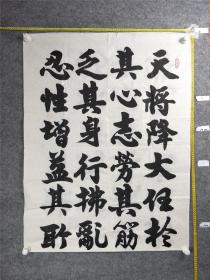 天將降大任於
其心志勞其筋
乏其身行拂亂
忍性增益其所